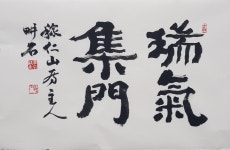 瑞氣
集門
仁山房主人
耕石